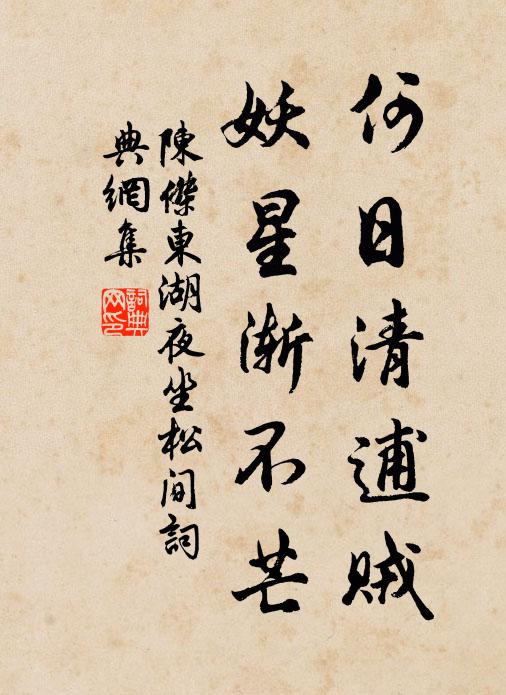 何日清逋賊
妖星渐不芒
陳傑東湖夜坐松间詞
典網集
詞典
网印